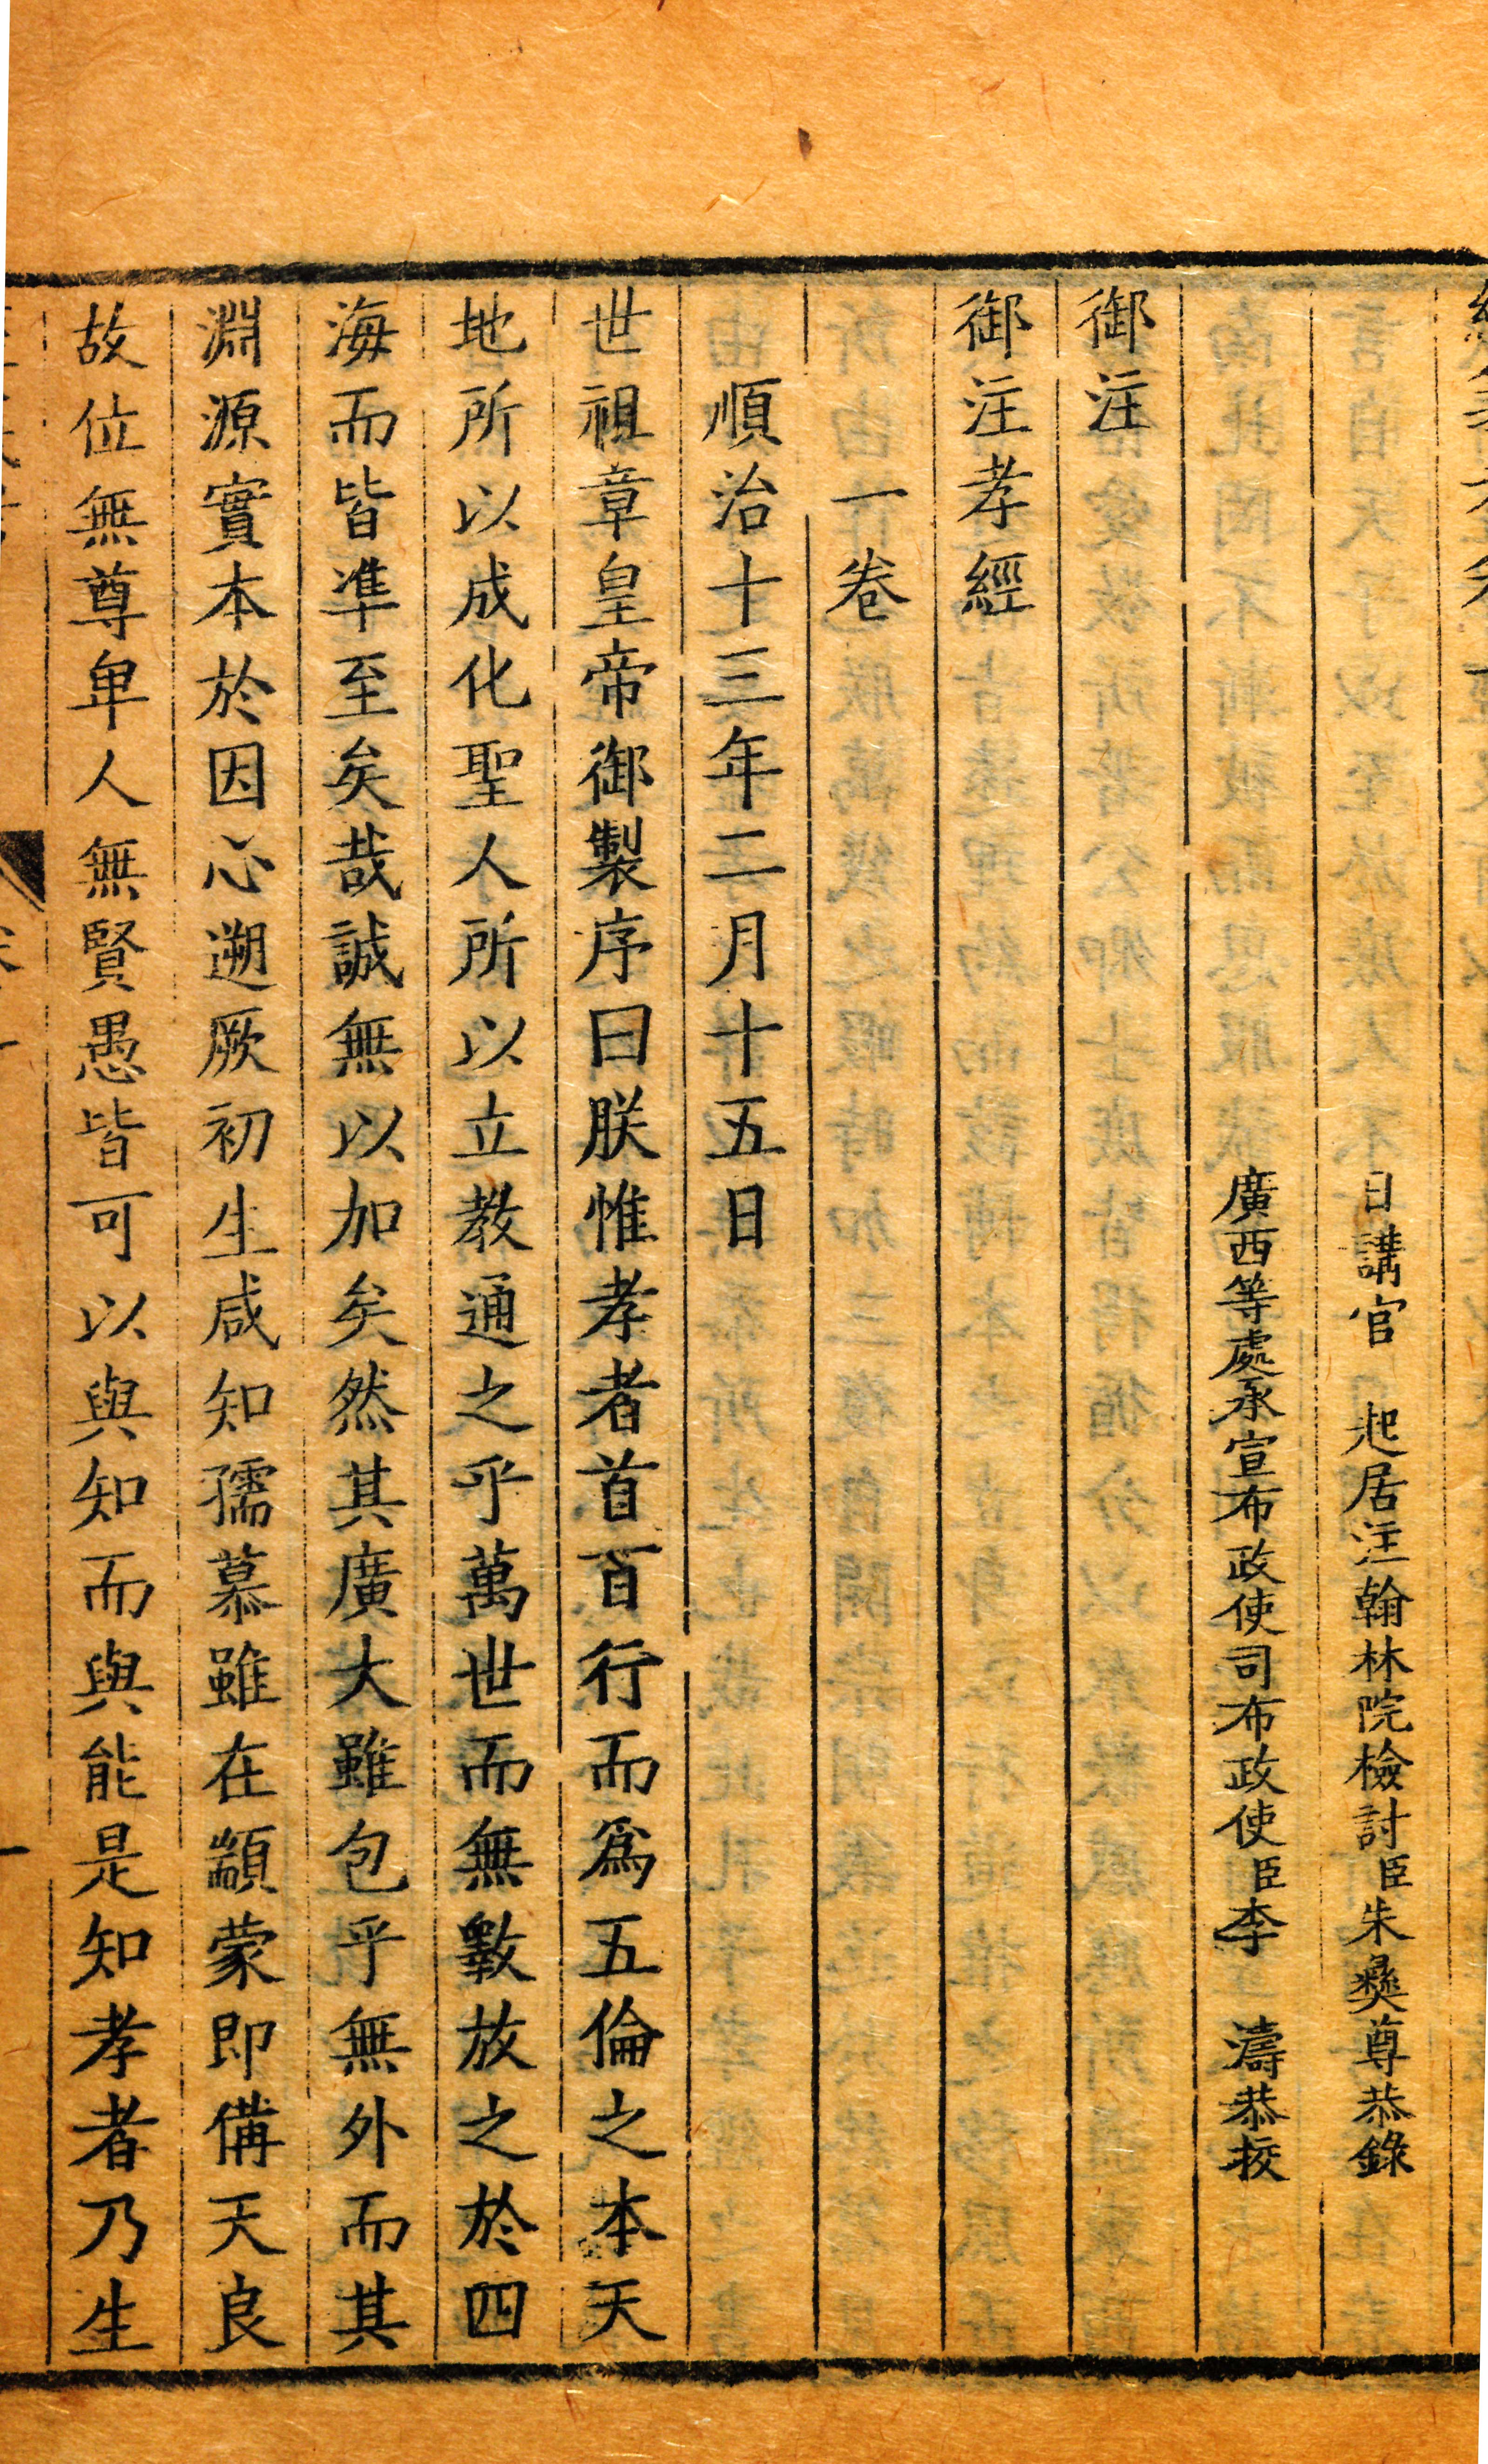 日講官 起居注翰林院檢討臣朱彝尊恭錄
廣西等處承宣布政使司布政使臣李 濤恭挍
御注
御注孝經
一卷
順治十三年二月十五日
世祖章皇帝御製序曰朕惟孝者首百行而爲五倫之本天
地所以成化聖人所以立教通之乎萬世而無斁放之於四
海而皆準至矣哉誠無以加矣然其廣大雖包乎無外而其
淵源實本於因心遡厥初生咸知孺慕雖在顓蒙即備天良
故位無尊卑人無賢愚皆可以與知而與能是知孝者乃生